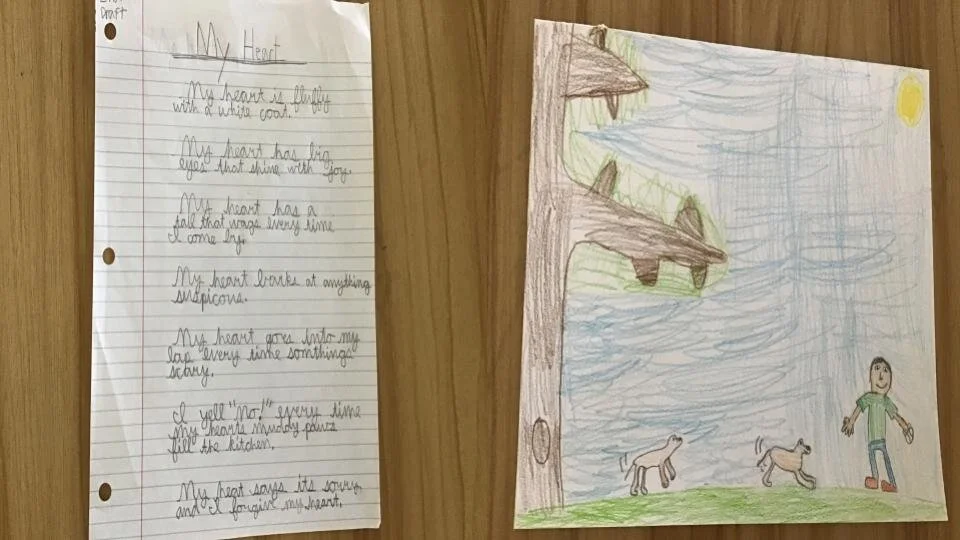 Draft
My Heart
My heart is fluffy
with a white coat.
My heart has big
eyes that shine with joy.
My heart has a
tail that wags every time
I come by.
My heart barks at anything
suspicous.
My heart goes into my
lap every time somthings
scary.
I yell "No!" every time
my hearts muddy paws
fill the kitchen.
My heat says its sorry
and I forgive my heart.